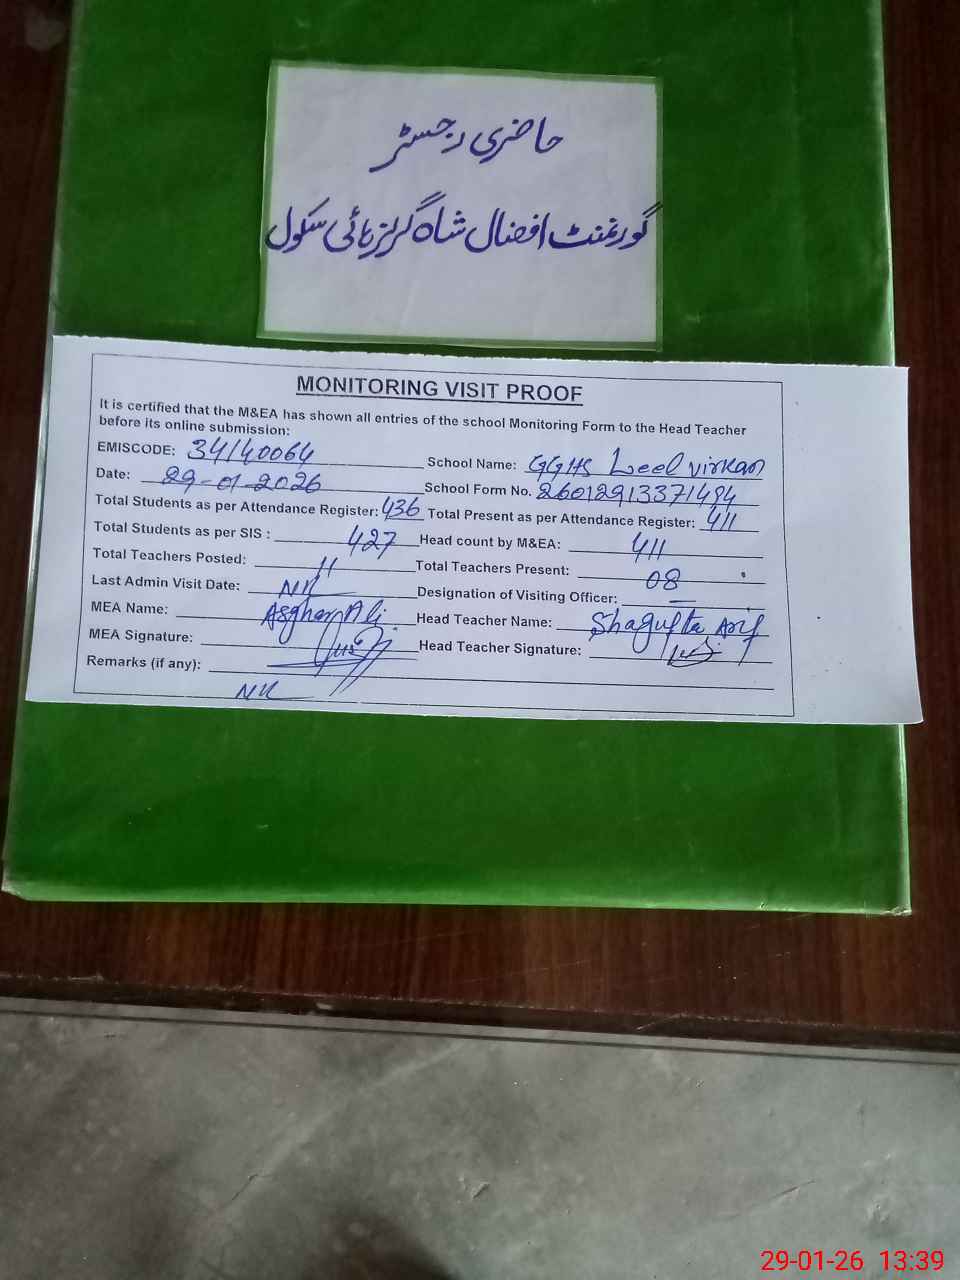 حاضری رجسٹر
گورنمنٹ افضال شاہ گرلز ہائی سکول
MONITORING VISIT PROOF
It is certified that the M&EA has shown all entries of the school Monitoring Form to the Head Teacher
before its online submission:
EMISCODE: 34140064 School Name: GGHS Leel virkan
Date: 29-01-2026 School Form No. 26012913371494
Total Students as per Attendance Register: 436 Total Present as per Attendance Register: 411
Total Students as per SIS : 427 Head count by M&EA: 411
Total Teachers Posted: 11 Total Teachers Present: 08
Last Admin Visit Date: Nil Designation of Visiting Officer: –
MEA Name: Asghar Ali Head Teacher Name: Shagufta Arif
MEA Signature: Head Teacher Signature:
Remarks (if any):
Nil
29-01-26 13:39